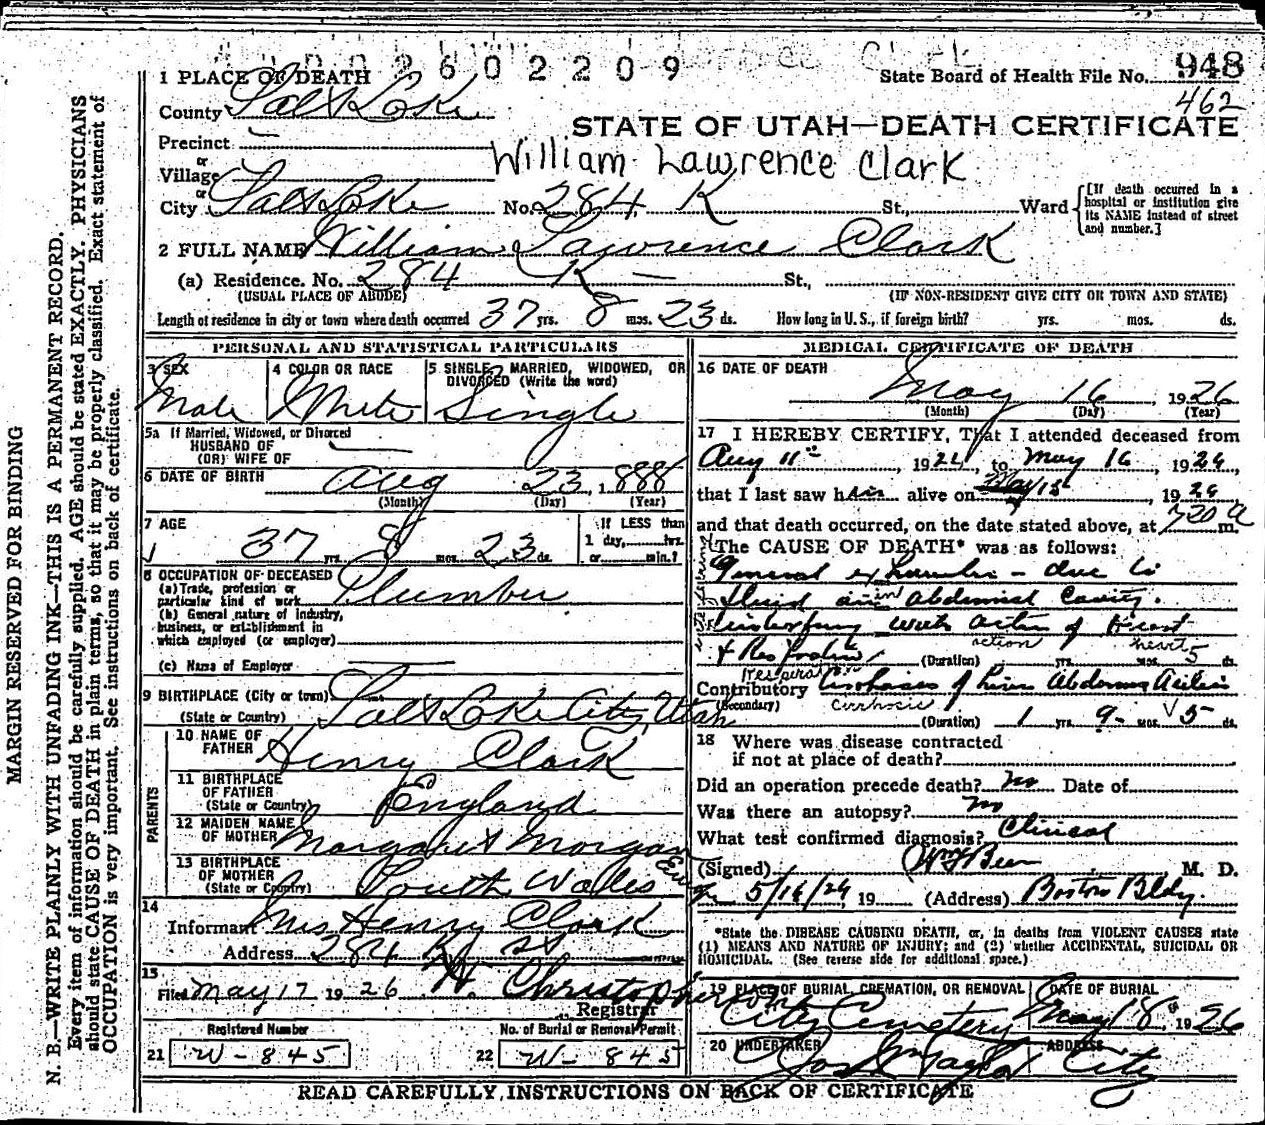 2602209
1 PLACE OF DEATH
State Board of Health File No. 948
County Salt Lake
462
STATE OF UTAH—DEATH CERTIFICATE
Precinct
or
Village
William Lawrence Clark
or
City Salt Lake No. 284 K St., Ward
[If death occurred in a hospital or institution give its NAME instead of street and number.]
2 FULL NAME William Lawrence Clark
(a) Residence. No. 284 K — St.,
(USUAL PLACE OF ABODE) (IF NON-RESIDENT GIVE CITY OR TOWN AND STATE)
Length of residence in city or town where death occurred 37 yrs. 8 mos. 23 ds. How long in U. S., if foreign birth? yrs. mos. ds.
PERSONAL AND STATISTICAL PARTICULARS
3 SEX
Male
4 COLOR OR RACE
White
5 SINGLE, MARRIED, WIDOWED, OR DIVORCED (Write the word)
Single
5a If Married, Widowed, or Divorced
HUSBAND OF
(OR) WIFE OF
6 DATE OF BIRTH Aug 23, 1888
(Month) (Day) (Year)
7 AGE
37 yrs. 8 mos. 23 ds.
If LESS than
1 day, hrs.
or min.?
8 OCCUPATION OF DECEASED
(a) Trade, profession or
particular kind of work Plumber
(b) General nature of Industry,
business, or establishment in
which employed (or employer)
(c) Name of Employer
9 BIRTHPLACE (City or town)
(State or Country) Salt Lake City, Utah
PARENTS
10 NAME OF
FATHER Henry Clark
11 BIRTHPLACE
OF FATHER
(State or Country) England
12 MAIDEN NAME
OF MOTHER Margaret Morgan
13 BIRTHPLACE
OF MOTHER
(State or Country) South Wales
14
Informant Mrs Henry Clark
Address 284 K St
15
Filed May 17 1926 H. Christopherson
Registrar
Registered Number
21 W-845
No. of Burial or Removal Permit
22 W-845
MEDICAL CERTIFICATE OF DEATH
16 DATE OF DEATH
May 16 1926
(Month) (Day) (Year)
17 I HEREBY CERTIFY, That I attended deceased from
Aug 11th, 192 to May 16, 1926,
that I last saw him alive on May 15, 1926
and that death occurred, on the date stated above, at 720 a m.
The CAUSE OF DEATH* was as follows:
General exhaustion — due to
fluid in abdominal cavity.
Interfering with action of heart
action heart
& Respiration (Duration) yrs. mos. 5 ds.
Respiration
Contributory Cirrhosis of liver Abdominal Ascites
(Secondary) Cirrhosis
(Duration) 1 yrs. 9 mos. 5 ds.
18 Where was disease contracted
if not at place of death?
Did an operation precede death? no Date of
Was there an autopsy? no
What test confirmed diagnosis? Clinical
(Signed) W F Beer M. D.
5/16/26 19 (Address) Boston Bldg.
*State the DISEASE CAUSING DEATH, or, in deaths from VIOLENT CAUSES state
(1) MEANS AND NATURE OF INJURY; and (2) whether ACCIDENTAL, SUICIDAL OR
HOMICIDAL. (See reverse side for additional space.)
19 PLACE OF BURIAL, CREMATION, OR REMOVAL
City Cemetery
DATE OF BURIAL
May 18, 1926
20 UNDERTAKER
Jos Wm Taylor
ADDRESS
City
READ CAREFULLY INSTRUCTIONS ON BACK OF CERTIFICATE
MARGIN RESERVED FOR BINDING
N. B.—WRITE PLAINLY WITH UNFADING INK—THIS IS A PERMANENT RECORD.
Every item of information should be carefully supplied. AGE should be stated EXACTLY. PHYSICIANS
should state CAUSE OF DEATH in plain terms, so that it may be properly classified. Exact statement of
OCCUPATION is very important. See instructions on back of certificate.